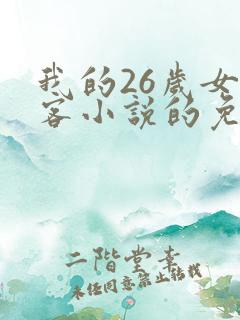 我的26岁女
客小说的免
二阶堂素
未经同意禁止转载